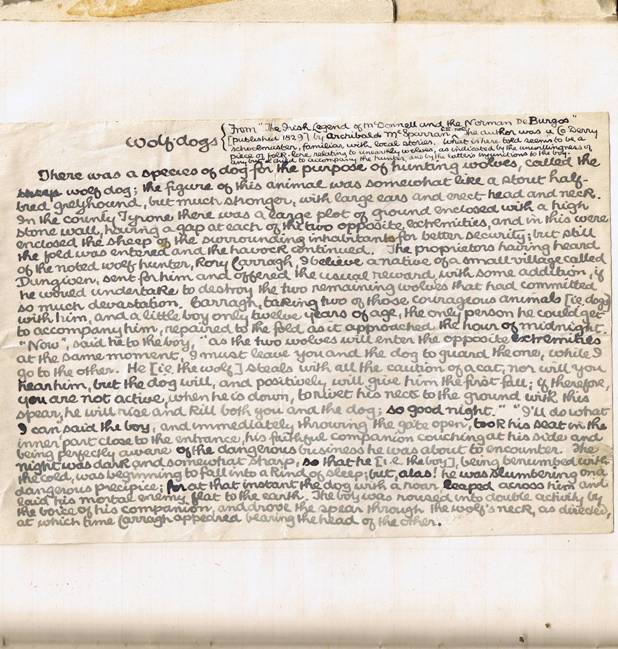 Wolf dogs
From "The Irish Legend of McDonnell and the Norman De Burgos"
[published 1829] by Archibald McSparran. The author was a Co Derry
schoolmaster, familiar with local stories. What is here told seems to be a
piece of folk-lore, relating to unearthly wolves, as indicated by the unwillingness of
any boy to accompany the hunter, and by the latter's injunctions to the boy.
There was a species of dog for the purpose of hunting wolves, called the
wolf dog; the figure of this animal was somewhat like a stout half-
bred greyhound, but much stronger, with large ears and erect head and neck.
In the county Tyrone there was a large plot of ground enclosed with a high
stone wall, having a gap at each of the two opposite extremities, and in this were
enclosed the sheep of the surrounding inhabitants for better security; but still
the fold was entered and the havock continued. The proprietors having heard
of the noted wolf hunter, Rory Carragh, I believe a native of a small village called
Dungiven, sent for him and offered the usual reward with some addition, if
he would undertake to destroy the two remaining wolves that had committed
so much devastation. Carragh, taking two of those courageous animals [i.e. dogs]
with him, and a little boy only twelve years of age, the only person he could get
to accompany him, repaired to the fold as it approached the hour of midnight.
"Now", said he to the boy, "as the two wolves will enter the opposite extremities
at the same moment, I must leave you and the dog to guard the one, while I
go to the other. He [i.e. the wolf] steals with all the caution of a cat, nor will you
hear him, but the dog will, and positively will give him the first fall; if therefore,
you are not active, when he is down, to rivet his neck to the ground with this
spear, he will rise and kill both you and the dog; so good night." "I'll do what
I can said the boy, and immediately throwing the gate open, took his seat in the
inner part close to the entrance, his faithful companion couching at his side and
being perfectly aware of the dangerous business he was about to encounter. The
night was dark and somewhat sharp, so that he [i.e. the boy], being benumbed with
the cold, was beginning to fall into a kind of sleep; but, alas! he was slumbering on a
dangerous precipice; for at that instant the dog with a roar leaped across him and
laid his mortal enemy flat to the earth. The boy was roused into double activity by
the voice of his companion, and drove the spear through the wolf's neck, as directed,
at which time Carragh appeared bearing the head of the other.